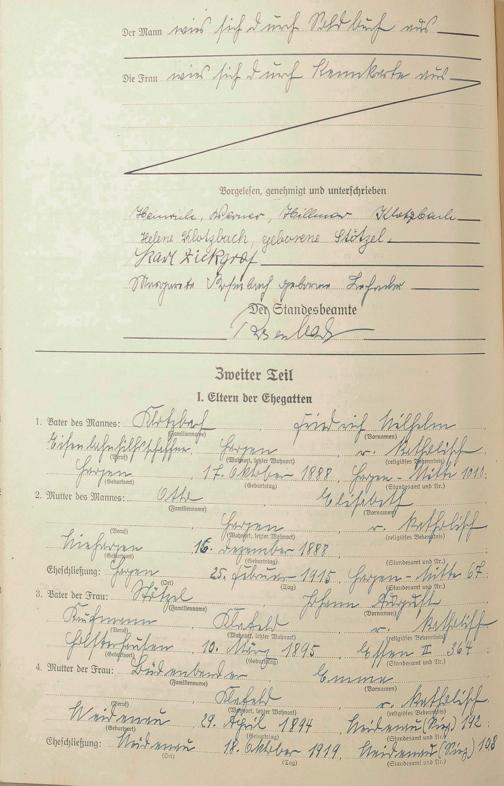 Der Mann wies sich durch Soldbuch aus
Die Frau wies sich durch Kennkarte aus
Vorgelesen, genehmigt und unterschrieben
Heinrich, Werner, Hillmar Klotzbach
Helene Klotzbach, geborene Stötzel
Karl Zickgraf
Margarete Rosenbach geborene
Der Standesbeamte
Rosenbach
Zweiter Teil
I. Eltern der Ehegatten
1. Vater des Mannes: Klotzbach Friedrich Wilhelm
(Familienname) (Vornamen)
Eisenbahnhilfsschaffner Hagen r. katholisch
(Beruf) (Wohnort, letzter Wohnort) (religiöses Bekenntnis)
Hagen 17. Oktober 1888 Hagen-Mitte
(Geburtsort) (Geburtstag) (Standesamt und Nr.)
2. Mutter des Mannes: Otto Elisabeth
(Familienname) (Vornamen)
Hagen r. katholisch
(Beruf) (Wohnort, letzter Wohnort) (religiöses Bekenntnis)
16. Dezember 1888
(Geburtsort) (Geburtstag) (Standesamt und Nr.)
Eheschließung: Hagen 25. Februar 1915 Hagen-Mitte 67
(Ort) (Tag) (Standesamt und Nr.)
3. Vater der Frau: Stötzel Johann August
(Familienname) (Vornamen)
Kaufmann Klafeld r. katholisch
(Beruf) (Wohnort, letzter Wohnort) (religiöses Bekenntnis)
Holsterhausen 10. März 1895 Essen II 364
(Geburtsort) (Geburtstag) (Standesamt und Nr.)
4. Mutter der Frau: Büdenbender Emma
(Familienname) (Vornamen)
Klafeld r. katholisch
(Beruf) (Wohnort, letzter Wohnort) (religiöses Bekenntnis)
Weidenau 29. April 1894 Weidenau (Sieg) 192
(Geburtsort) (Geburtstag) (Standesamt und Nr.)
Eheschließung: Weidenau 18. Oktober 1919 Weidenau (Sieg) 108
(Ort) (Tag) (Standesamt und Nr.)